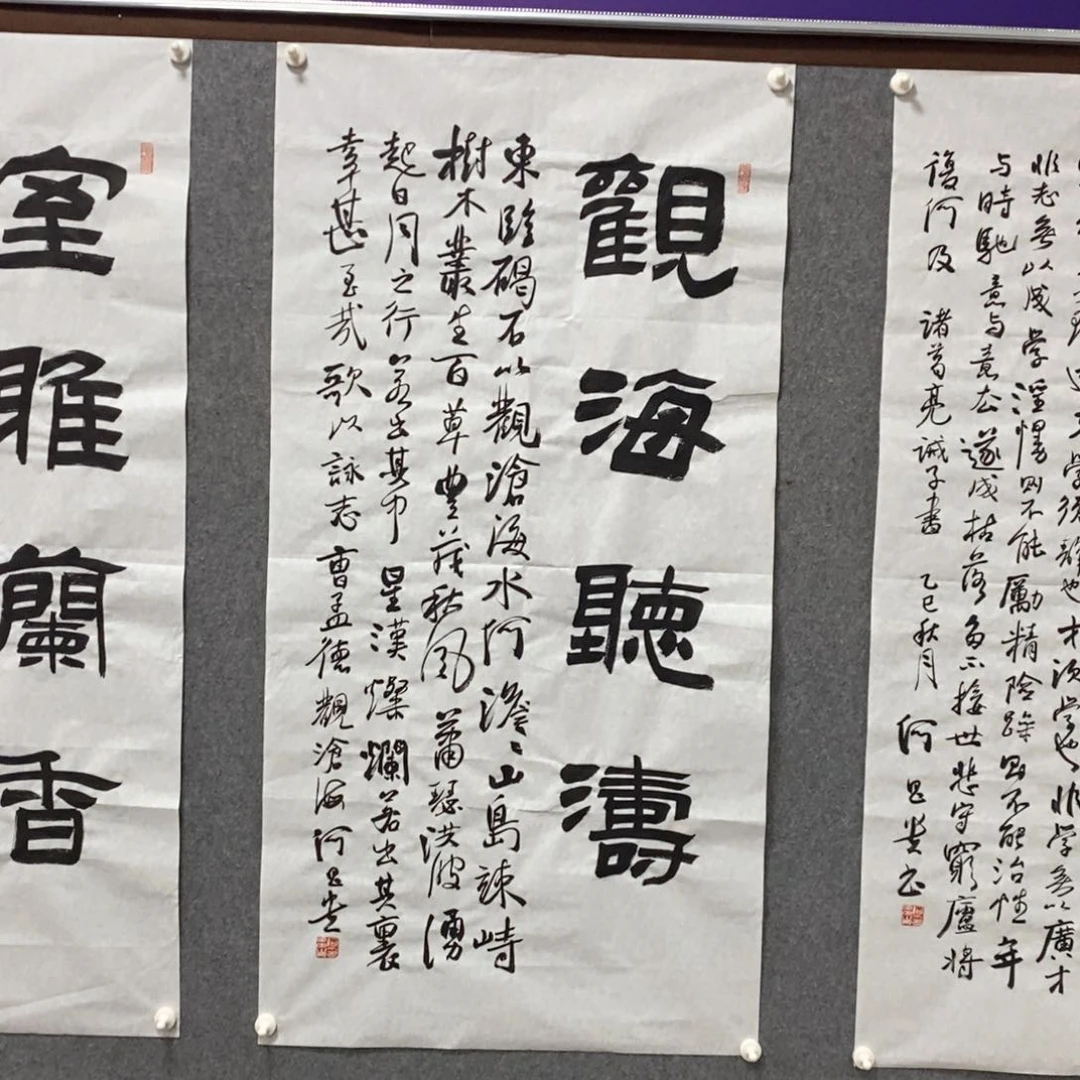 學須靜也才須學也非學無以廣才
非志無以成學淫慢則不能勵精險躁則不能治性年
与時馳意与意去遂成枯落多不接世悲守窮廬將
復何及 諸葛亮誡子書 乙巳秋月 何
觀海聽濤
東臨碣石以觀滄海水何澹〻山島竦峙
樹木叢生百草豐茂秋風蕭瑟洪波湧
起日月之行若出其中星漢燦爛若出其裏
幸甚至哉歌以詠志曹孟德觀滄海何
室雅蘭香